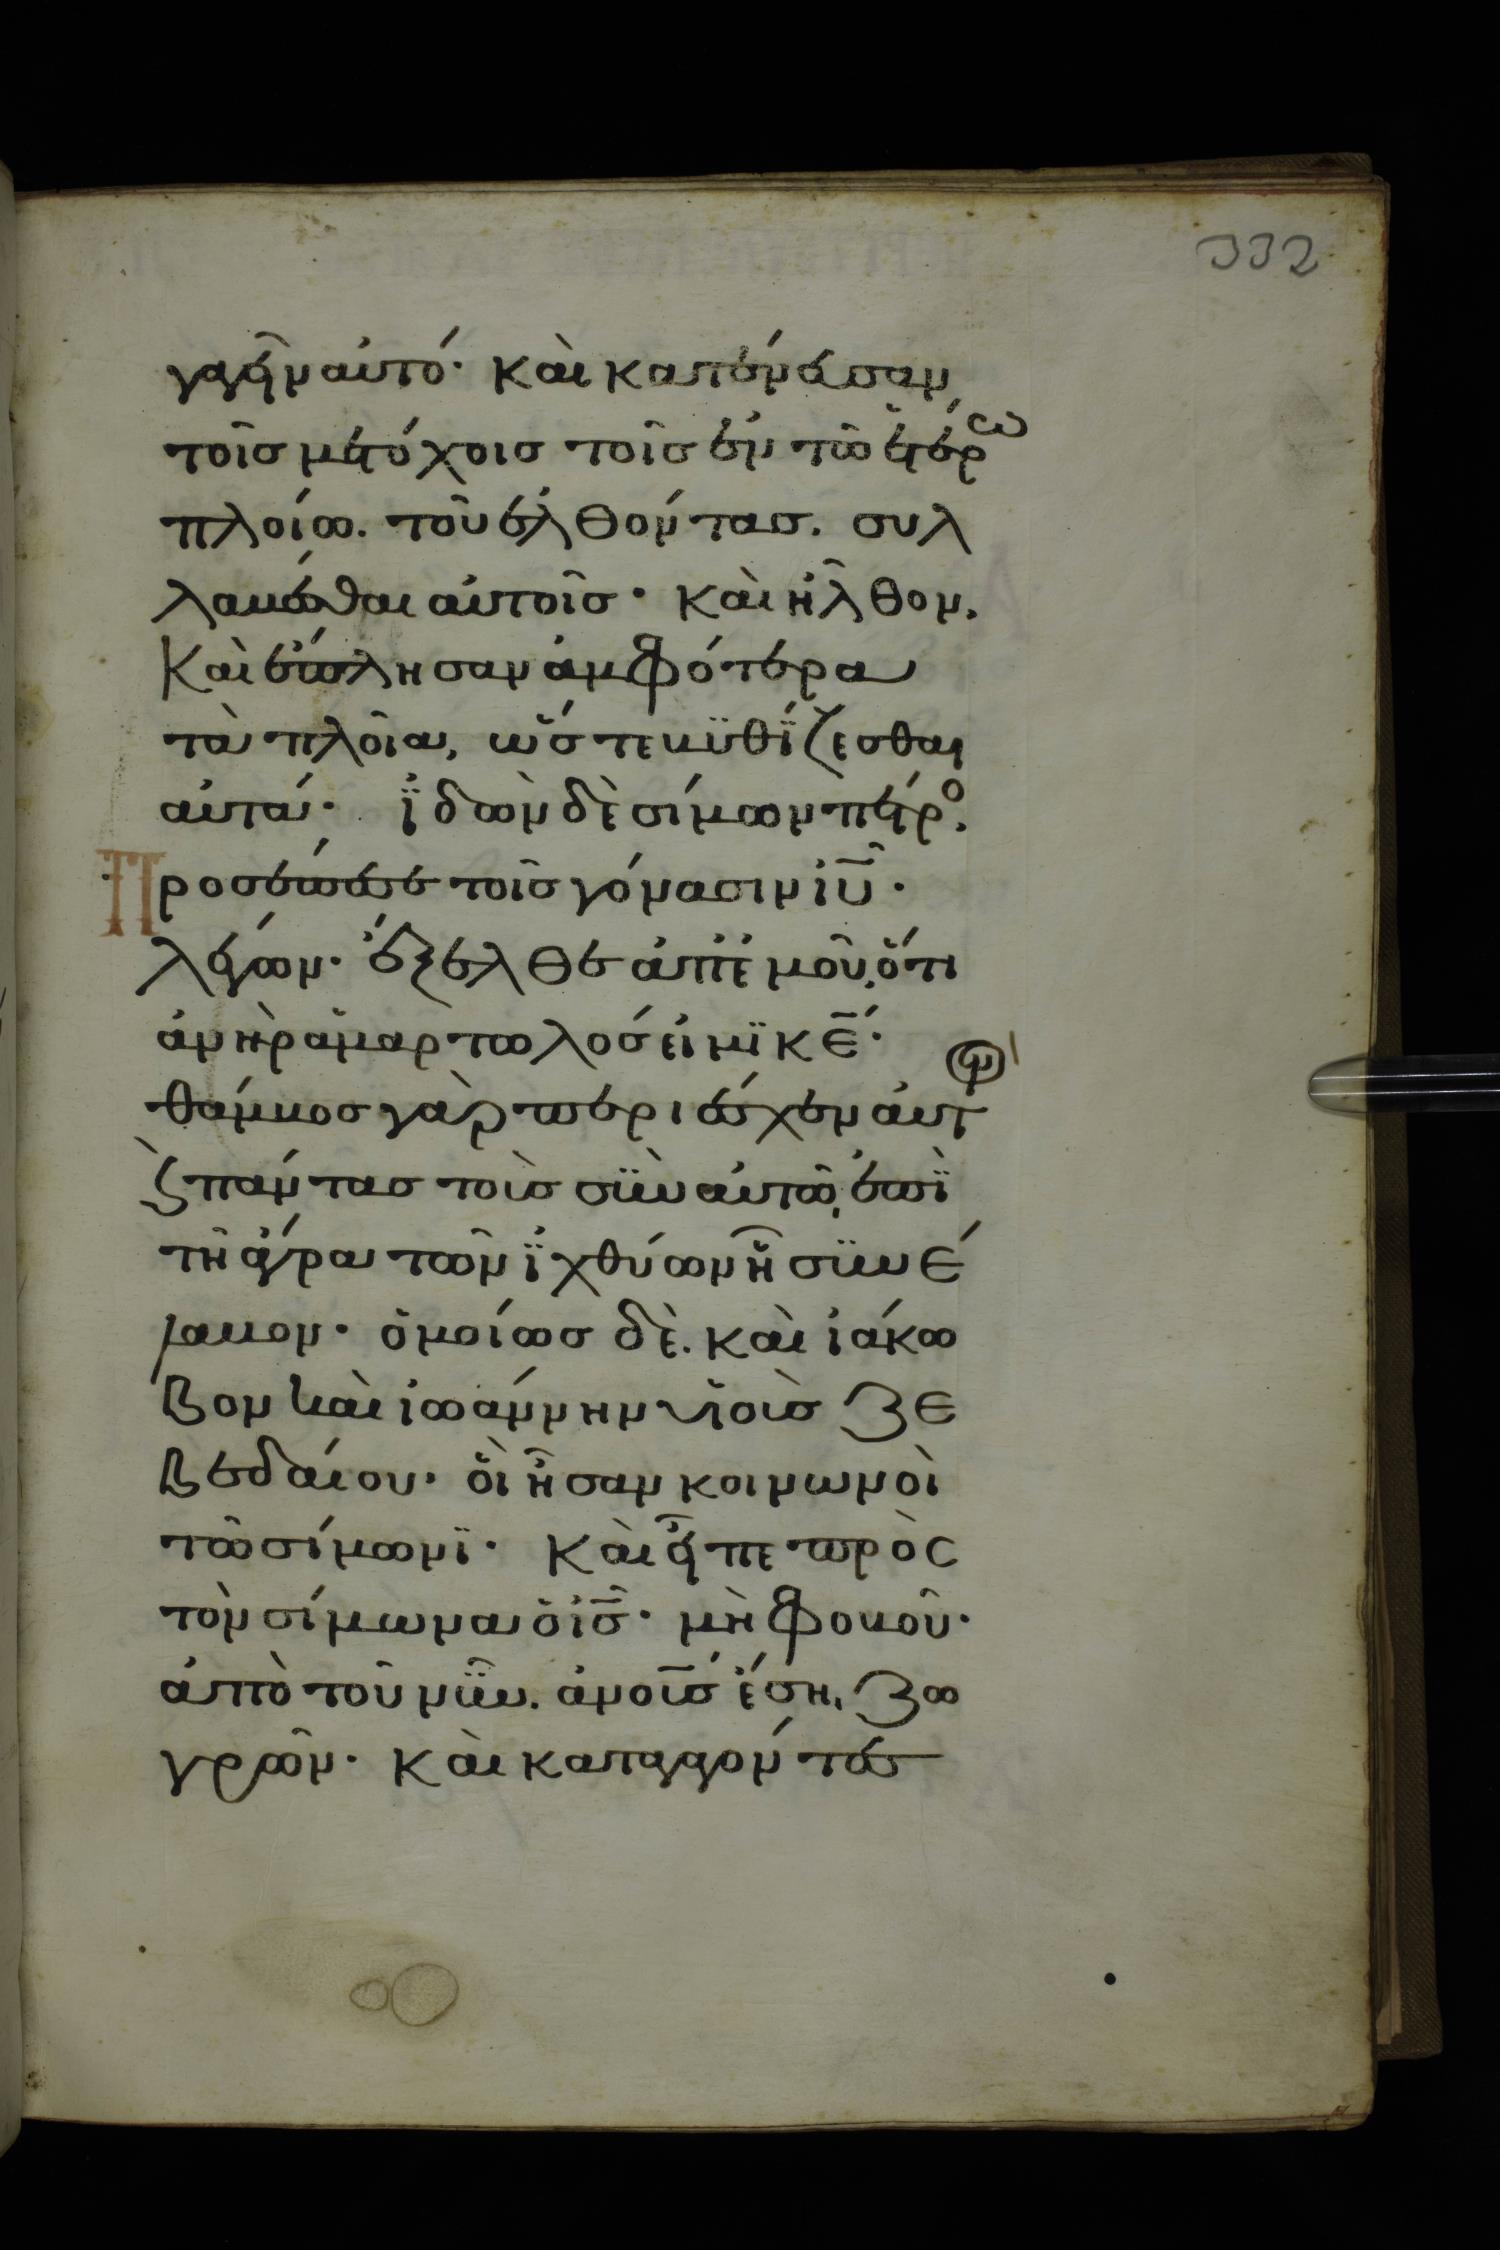 332
γαγεῖν αὐτό· καὶ κατένευσαν
τοῖσ μετόχοισ τοῖσ ἐν τῶ ἑτέρω
πλοίω. τοῦ ἐλθόντασ. συλ
λαμβέσθαι αὐτοῖσ· καὶ ἦλθον.
Καὶ ἔπλησαν ἀμφότερα
τὰ πλοῖα, ὥστε βϋθΐζεσθαι
αὐτά· ἰ̈δὼν δὲ σίμων πέτρο.
Προσέπεσε τοῖσ γόνασιν ἰῦ·
λέγων· ἔξελθε ἀπ' ἐμοῦ, ὅτι
ἀνὴρ ἁμαρτωλόσ εἰμϊ κε̄·
θάμβοσ γὰρ περιέσχεν αὐτὸν
ϗ̀ πάντασ τοὺσ σϋν αὐτῶ, ἐπϊ
τῆ ἄγρα τῶν ἰ̈χθύων ἧ σϋνέ
λαβον· ὁμοίωσ δὲ. καὶ ἰάκω
βον καὶ ἰωάννην υἱοὺσ ζε
βεδαίου· οἳ ἦσαν κοινωνοὶ
τῶ σίμωνϊ· Καὶ εἶπε πρὸς
τὸν σίμωνα ὁ ἰσ̄· μὴ φοβοῦ·
ἀπὸ τοῦ νῦν. ἀνουσ̄ ἔση, ζω
γρῶν· Καὶ καταγαγόντεσ